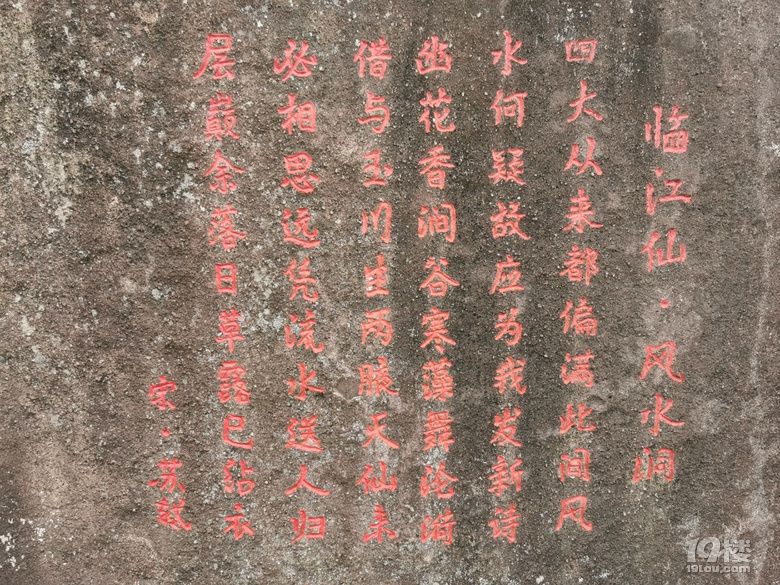 临江仙·风水洞
四大从来都偏满此间风
水何疑故应为我发新诗
幽花香涧谷寒藻舞沦漪
借与玉川生两腋天仙未
必相思远凭流水送人归
层巅余落日草露已沾衣
宋·苏轼
19楼
19lou.com